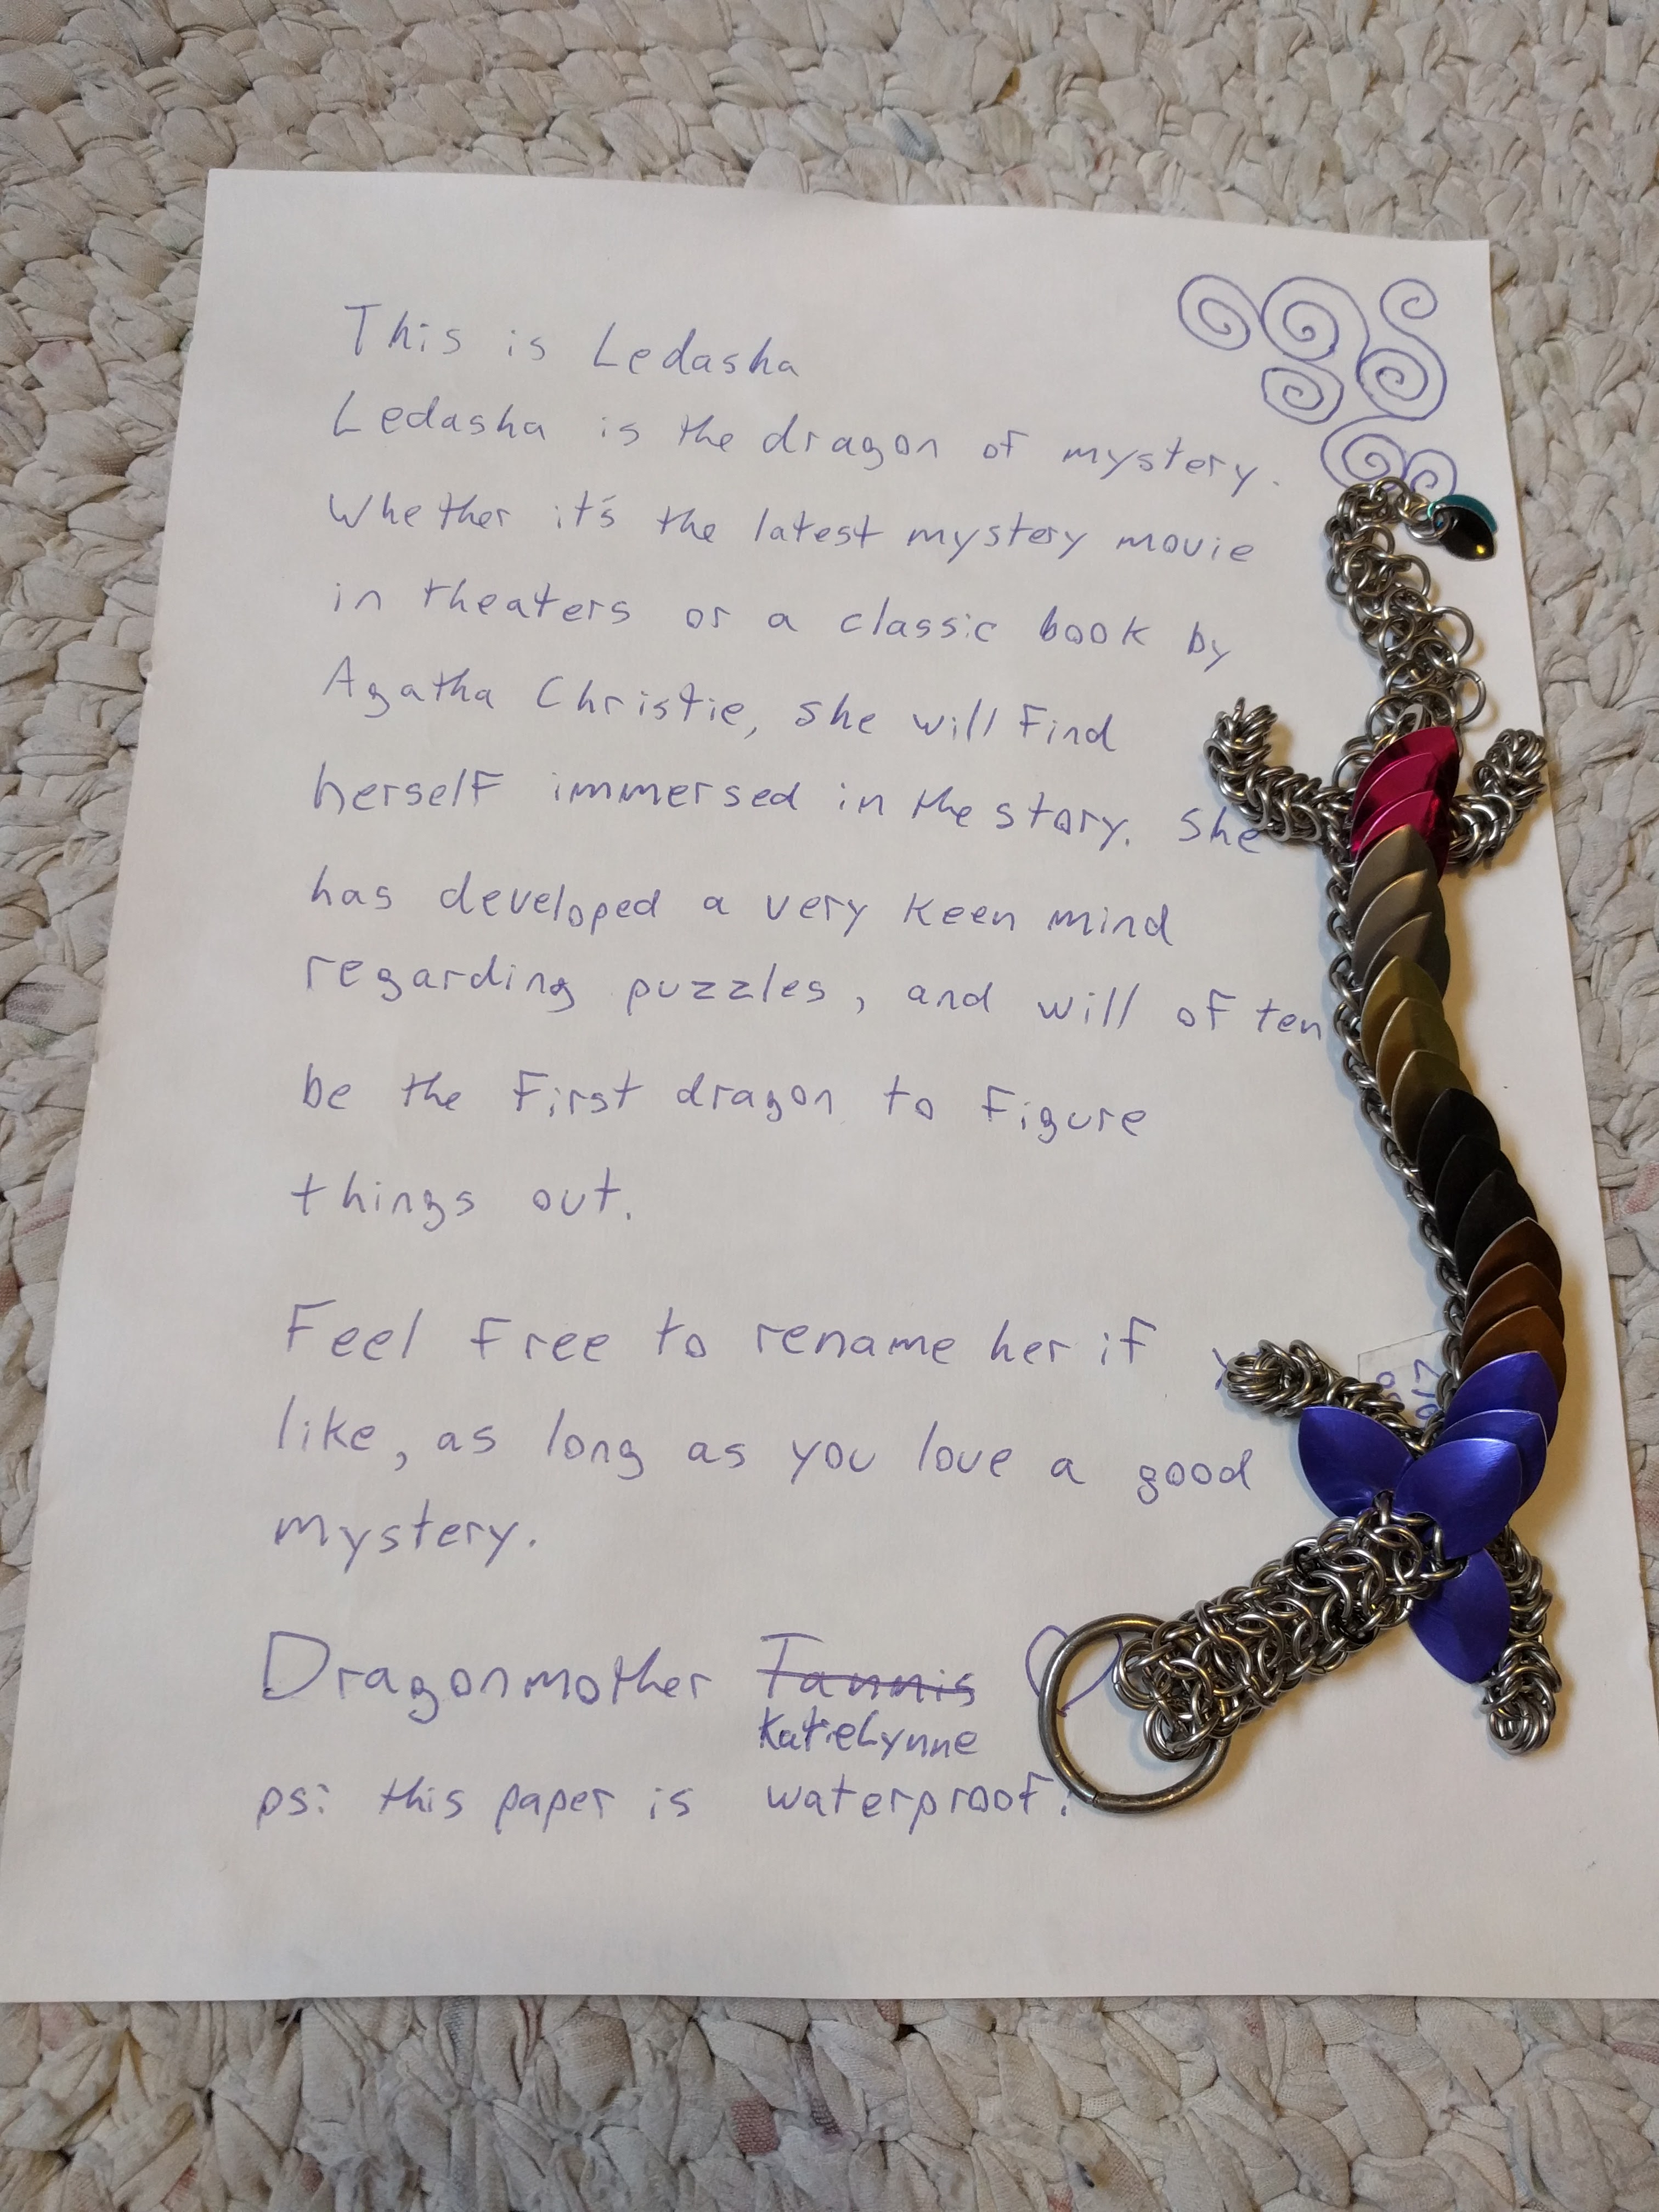 This is Ledasha
Ledasha is the dragon of mystery.
Whether it's the latest mystery movie
in theaters or a classic book by
Agatha Christie, she will find
herself immersed in the story. She
has developed a very keen mind
regarding puzzles, and will often
be the first dragon to figure
things out.
Feel free to rename her if
like, as long as you love a good
mystery.
Dragonmother Tannis
KatieLynne
ps: this paper is waterproof.